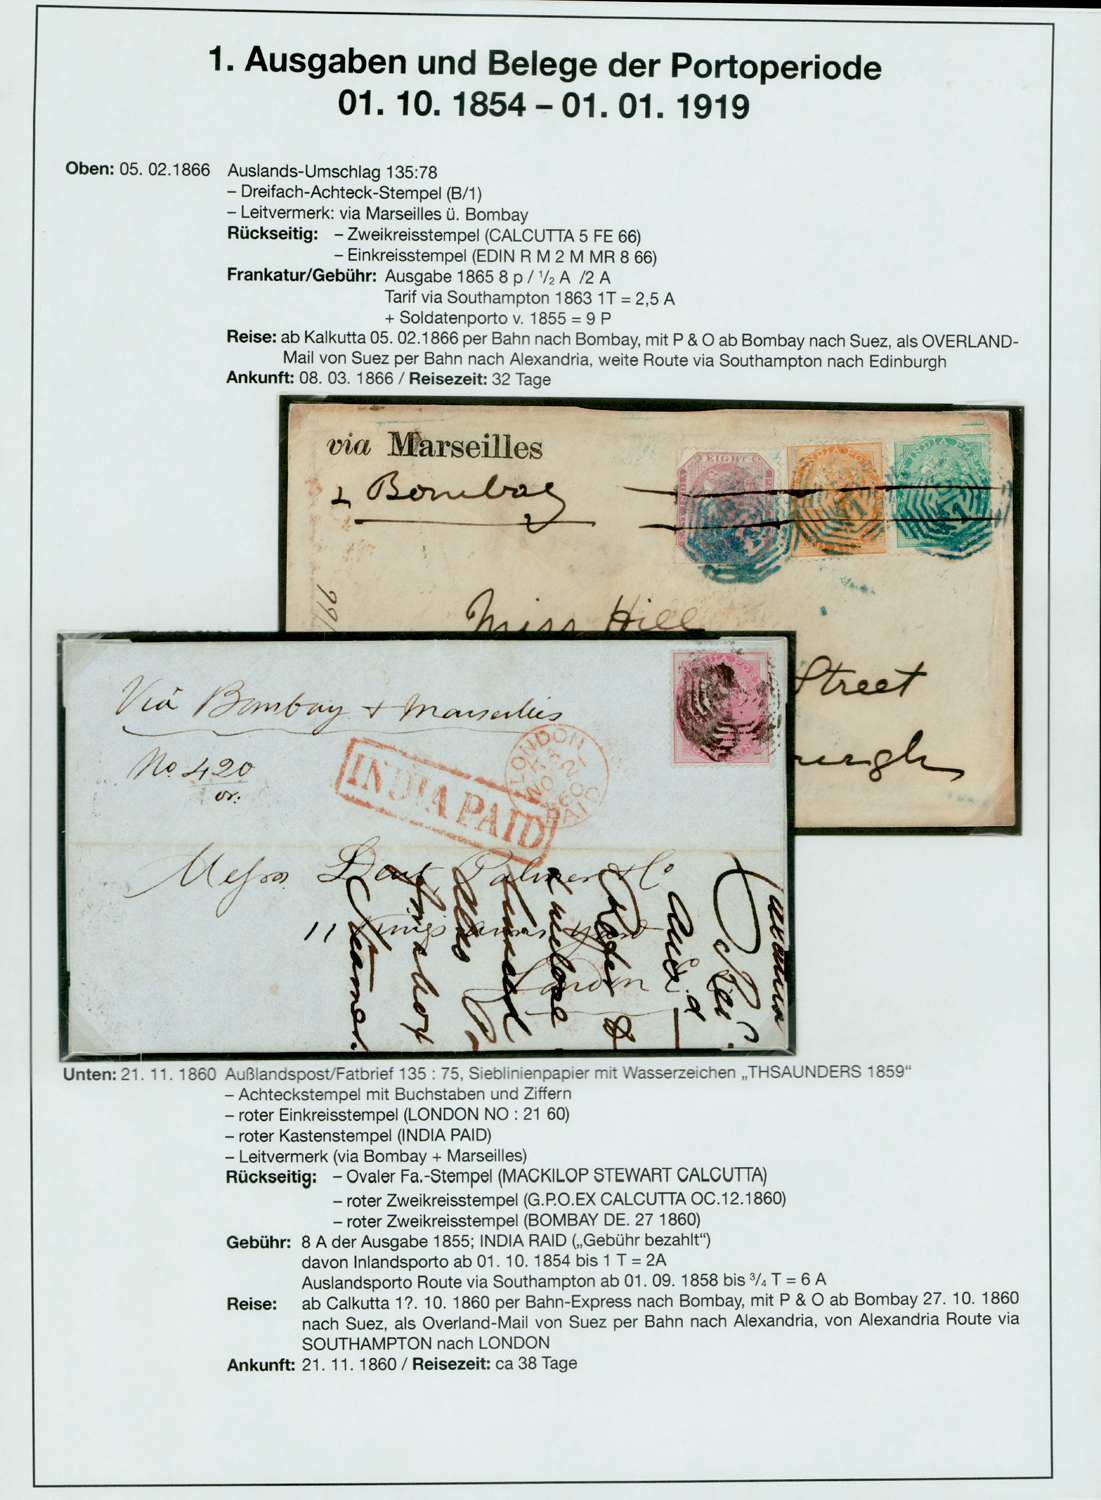 1. Ausgaben und Belege der Portoperiode
01. 10. 1854 – 01. 01. 1919
Oben: 05. 02.1866 Auslands-Umschlag 135:78
– Dreifach-Achteck-Stempel (B/1)
– Leitvermerk: via Marseilles ü. Bombay
Rückseitig: – Zweikreisstempel (CALCUTTA 5 FE 66)
– Einkreisstempel (EDIN R M 2 M MR 8 66)
Frankatur/Gebühr: Ausgabe 1865 8 p / ½ A /2 A
Tarif via Southampton 1863 1T = 2,5 A
+ Soldatenporto v. 1855 = 9 P
Reise: ab Kalkutta 05. 02.1866 per Bahn nach Bombay, mit P & O ab Bombay nach Suez, als OVERLAND-
Mail von Suez per Bahn nach Alexandria, weite Route via Southampton nach Edinburgh
Ankunft: 08. 03. 1866 / Reisezeit: 32 Tage
via Marseilles
& Bombay
EIGHT
INDIA PO
INDIA PO
Miss Hill
Street
Via Bombay + Marseilles
No. 420
or.
INDIA PAID
LONDON
NO 21
60
PAID
Messrs. Dent Palmer & Co
11 Kings arms yard
London
Steamer
Unten: 21. 11. 1860 Außlandspost/Fatbrief 135 : 75, Sieblinienpapier mit Wasserzeichen „THSAUNDERS 1859“
– Achteckstempel mit Buchstaben und Ziffern
– roter Einkreisstempel (LONDON NO : 21 60)
– roter Kastenstempel (INDIA PAID)
– Leitvermerk (via Bombay + Marseilles)
Rückseitig: – Ovaler Fa.-Stempel (MACKILOP STEWART CALCUTTA)
– roter Zweikreisstempel (G.P.O.EX CALCUTTA OC.12.1860)
– roter Zweikreisstempel (BOMBAY DE. 27 1860)
Gebühr: 8 A der Ausgabe 1855; INDIA RAID („Gebühr bezahlt“)
davon Inlandsporto ab 01. 10. 1854 bis 1 T = 2A
Auslandsporto Route via Southampton ab 01. 09. 1858 bis ¾ T = 6 A
Reise: ab Calkutta 1?. 10. 1860 per Bahn-Express nach Bombay, mit P & O ab Bombay 27. 10. 1860
nach Suez, als Overland-Mail von Suez per Bahn nach Alexandria, von Alexandria Route via
SOUTHAMPTON nach LONDON
Ankunft: 21. 11. 1860 / Reisezeit: ca 38 Tage